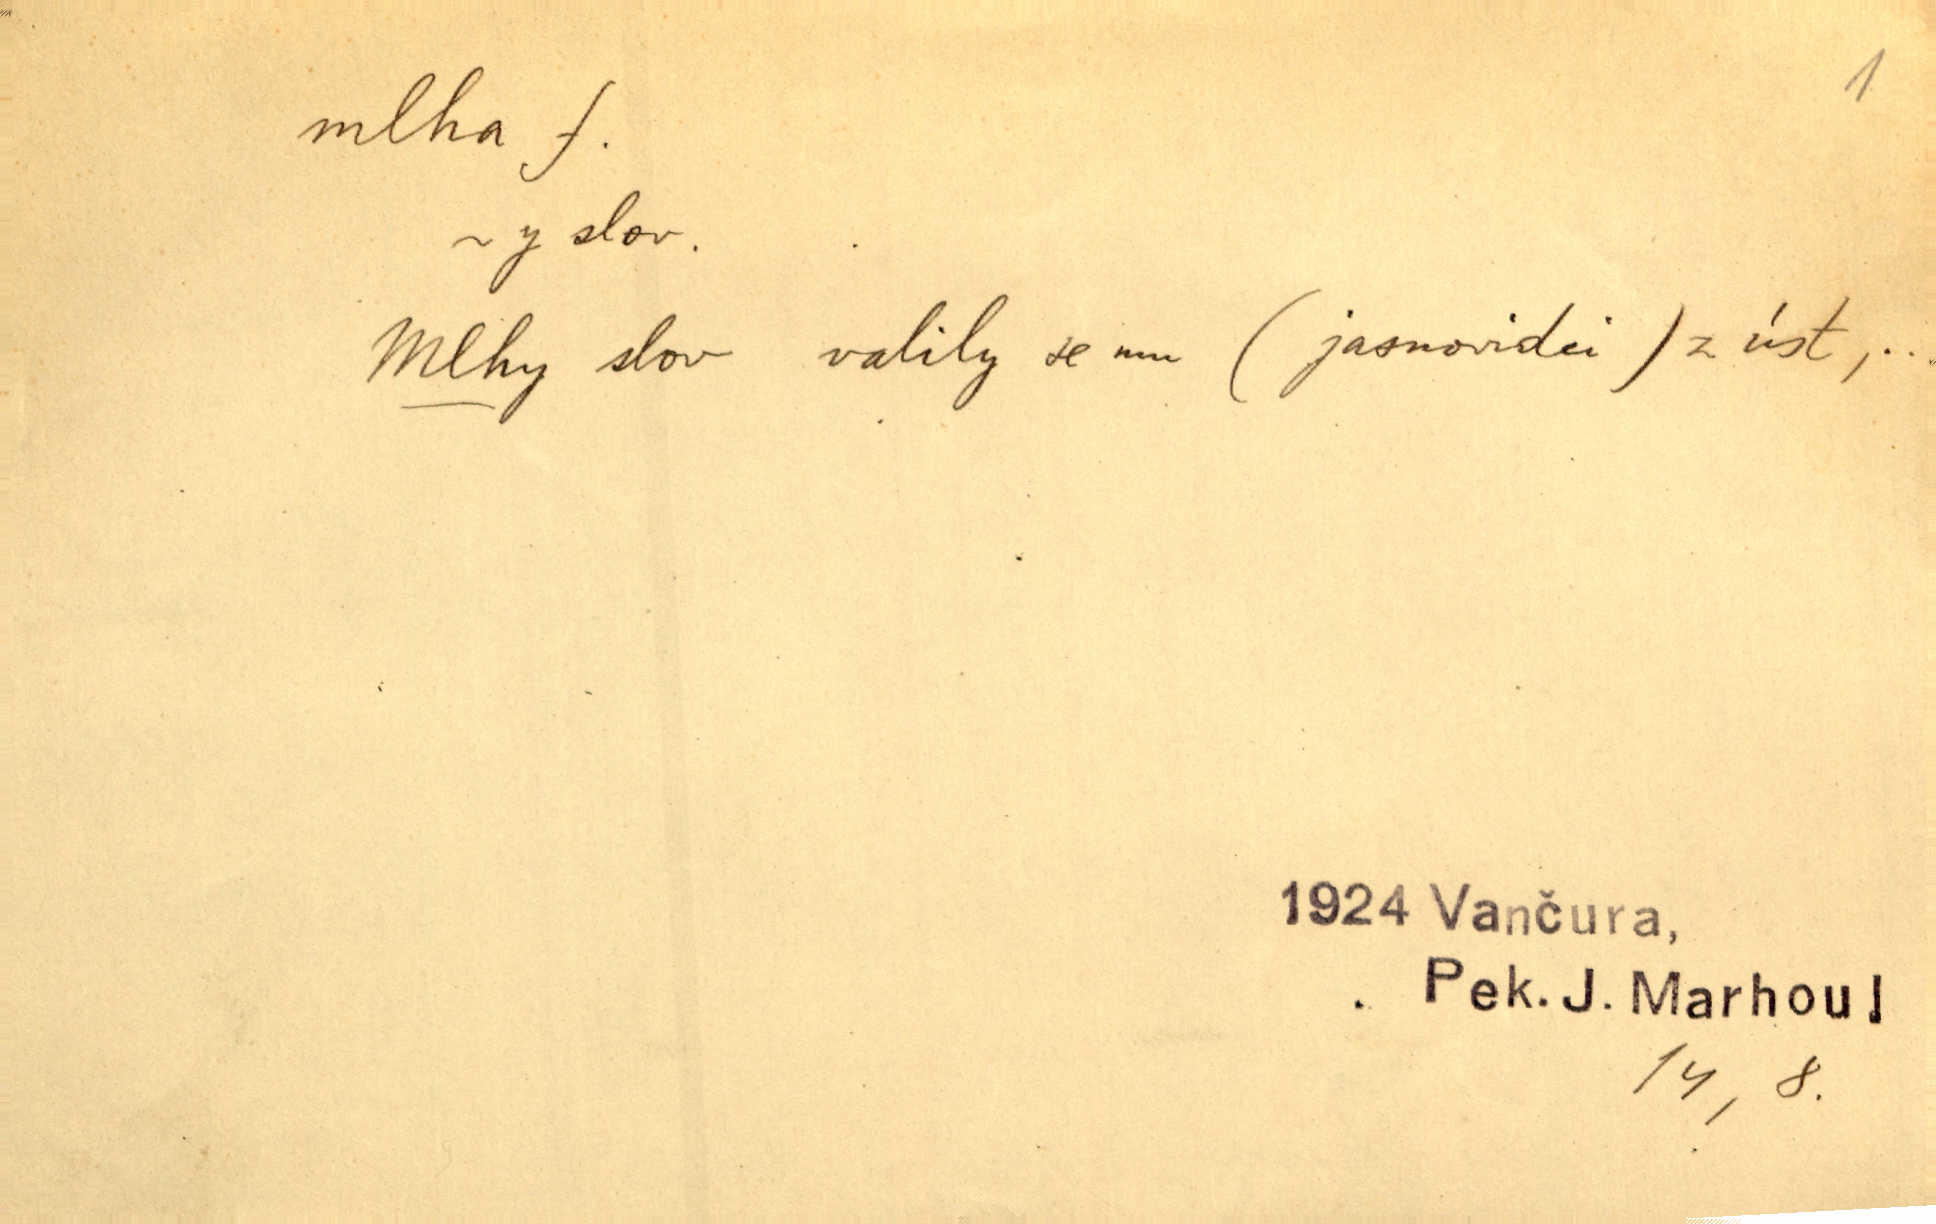 1
mlha f.
~y slov.
Mlhy slov valily se mu (jasnovidci) z úst, ..
1924 Vančura,
Pek. J. Marhoul
14, 8.